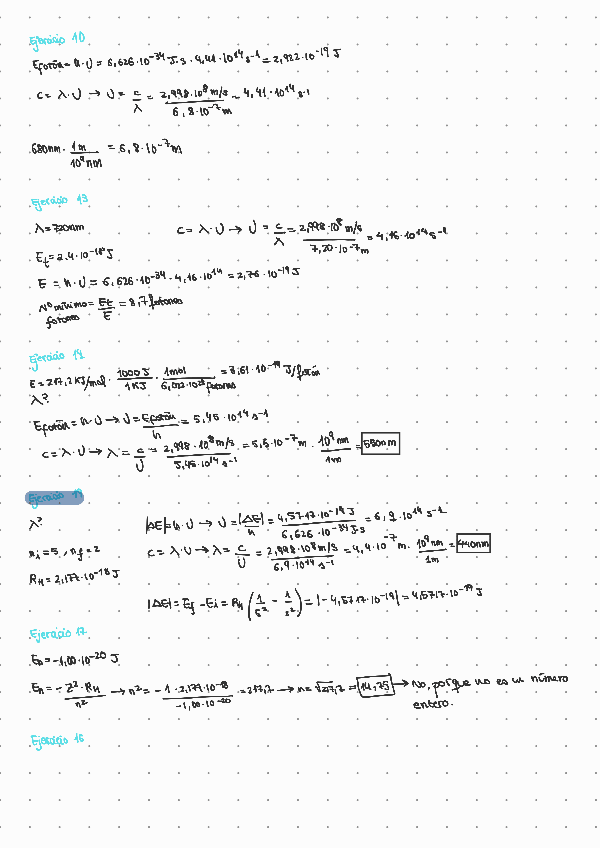 Ejercicio 10
Efotón = h · ν = 6,626·10⁻³⁴ J·s · 4,41·10¹⁴ s⁻¹ = 2,922·10⁻¹⁹ J
c = λ · ν → ν = c/λ = 2,998·10⁸ m/s / 6,8·10⁻⁷ m = 4,41·10¹⁴ s⁻¹
680nm · 1m / 10⁹ nm = 6,8·10⁻⁷ m
Ejercicio 13
λ = 720nm
c = λ · ν → ν = c/λ = 2,998·10⁸ m/s / 7,20·10⁻⁷ m = 4,16·10¹⁴ s⁻¹
Et = 2,4·10⁻¹⁸ J
E = h · ν = 6,626·10⁻³⁴ · 4,16·10¹⁴ = 2,76·10⁻¹⁹ J
Nº mínimo fotones = Et/E = 8,7 fotones
Ejercicio 14
E = 217,2 KJ/mol · 1000 J / 1 KJ · 1mol / 6,022·10²³ fotones = 3,61·10⁻¹⁹ J/fotón
λ?
Efotón = h · ν → ν = Efotón / h = 5,45·10¹⁴ s⁻¹
c = λ · ν → λ = c/ν = 2,998·10⁸ m/s / 5,45·10¹⁴ s⁻¹ = 5,5·10⁻⁷ m · 10⁹ nm / 1m = 550nm
Ejercicio 19
λ?
|ΔE| = h · ν → ν = |ΔE| / h = 4,5717·10⁻¹⁹ J / 6,626·10⁻³⁴ J·s = 6,9·10¹⁴ s⁻¹
ni = 5, nf = 2
c = λ · ν → λ = c/ν = 2,998·10⁸ m/s / 6,9·10¹⁴ s⁻¹ = 4,4·10⁻⁷ m · 10⁹ nm / 1m = 440nm
RH = 2,177·10⁻¹⁸ J
|ΔE| = Ef - Ei = RH (1/5² - 1/2²) = |-4,5717·10⁻¹⁹| = 4,5717·10⁻¹⁹ J
Ejercicio 17
En = -1,00·10⁻²⁰ J
En = - Z² · RH / n² → n² = - 1 · 2,177·10⁻¹⁸ / -1,00·10⁻²⁰ = 217,7 → n = √217,7 = 14,75 → No, porque no es un número
entero.
Ejercicio 16